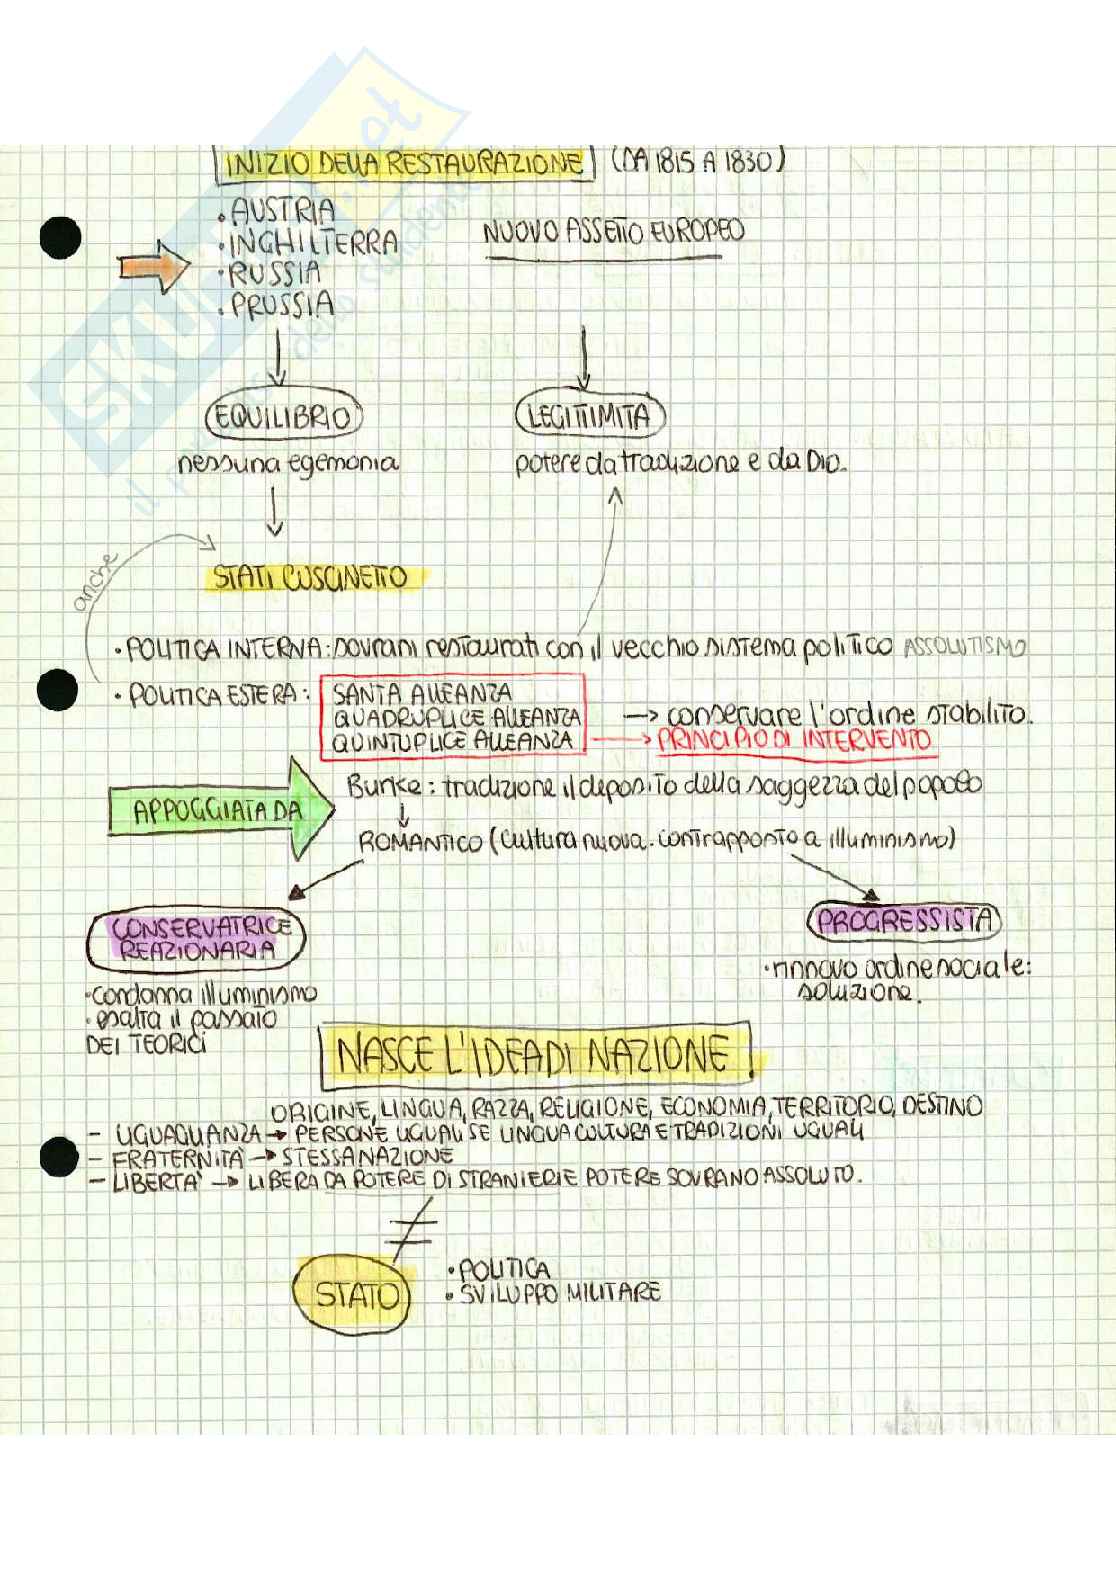 INIZIO DELLA RESTAURAZIONE (DA 1815 A 1830)
• AUSTRIA
• INGHILTERRA
• RUSSIA
• PRUSSIA
NUOVO ASSETTO EUROPEO
EQUILIBRIO
nessuna egemonia
LEGITTIMITA
potere da tradizione e da DIO.
anche
STATI CUSCINETTO
• POLITICA INTERNA: sovrani restaurati con il vecchio sistema politico ASSOLUTISMO
• POLITICA ESTERA: SANTA ALLEANZA
QUADRUPLICE ALLEANZA → conservare l'ordine stabilito.
QUINTUPLICE ALLEANZA → PRINCIPIO DI INTERVENTO
APPOGGIATA DA
Burke: tradizione il deposito della saggezza del popolo
ROMANTICO (cultura nuova. contrapposto a illuminismo)
CONSERVATRICE
REAZIONARIA
• condanna illuminismo
• esalta il passato
DEI TEORICI
PROGRESSISTA
• rinnovo ordine sociale:
soluzione.
NASCE L'IDEA DI NAZIONE!
ORIGINE, LINGUA, RAZZA, RELIGIONE, ECONOMIA, TERRITORIO, DESTINO
- UGUAGLIANZA → PERSONE UGUALI SE LINGUA CULTURA E TRADIZIONI UGUALI
- FRATERNITA' → STESSA NAZIONE
- LIBERTA' → LIBERA DA POTERE DI STRANIERI E POTERE SOVRANO ASSOLUTO.
≠
STATO
• POLITICA
• SVILUPPO MILITARE